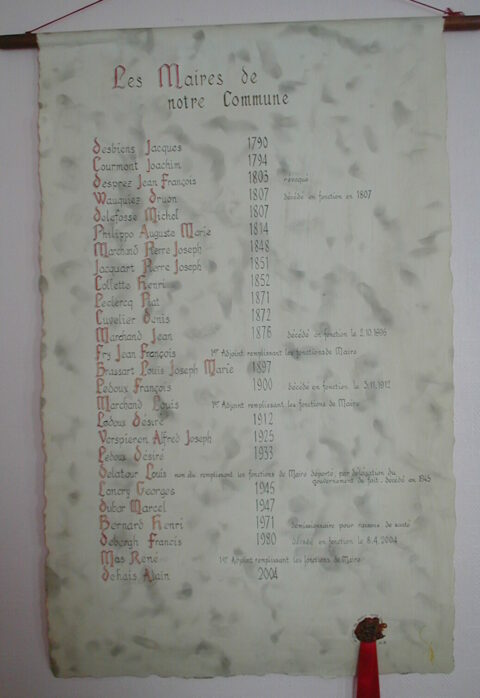 Les Maires de
notre Commune
Desbiens Jacques 1790
Courmont Joachim 1794
Desprez Jean François 1803 révoqué
Wauquiez Druon 1807 décédé en fonction en 1807
Delefosse Michel 1807
Philippo Auguste Marie 1814
Marchand Pierre Joseph 1848
Jacquart Pierre Joseph 1851
Collette Henri 1852
Leclercq Piat 1871
Cuvelier Denis 1872
Marchand Jean 1876 décédé en fonction le 2.10.1896
Fry Jean François 1er Adjoint remplissant les fonctions de Maire
Brassart Louis Joseph Marie 1897
Ledoux François 1900 décédé en fonction le 3.11.1912
Marchand Louis 1er Adjoint remplissant les fonctions de Maire
Ledoux Désiré 1912
Verspieren Alfred Joseph 1925
Ledoux Désiré 1933
Delatour Louis remplissant les fonctions de Maire déporté, par délégation du
gouvernement de fait, décédé en 1945
Lancry Georges 1945
Dubar Marcel 1947
Bernard Henri 1971 démissionnaire pour raisons de santé
Debergh Francis 1980 décédé en fonction le 8.4.2004
Mas René 1er Adjoint remplissant les fonctions de Maire
Dehais Alain 2004